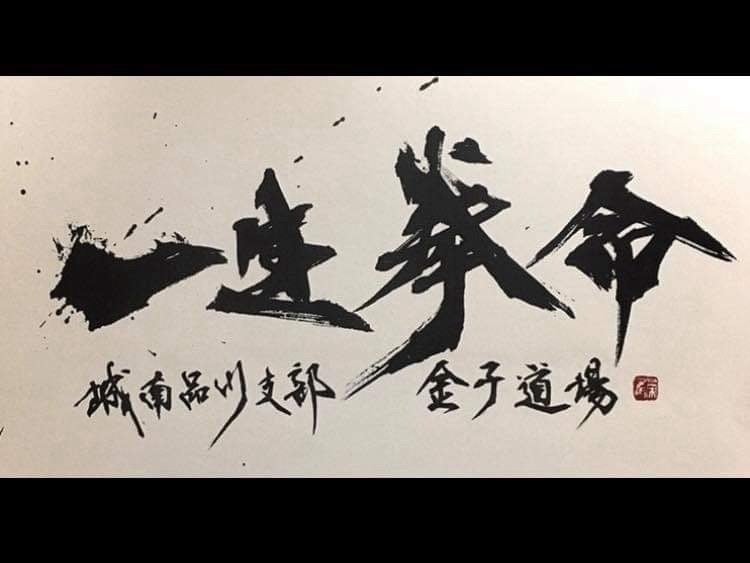 一生拳命
城南品川支部 金子道場